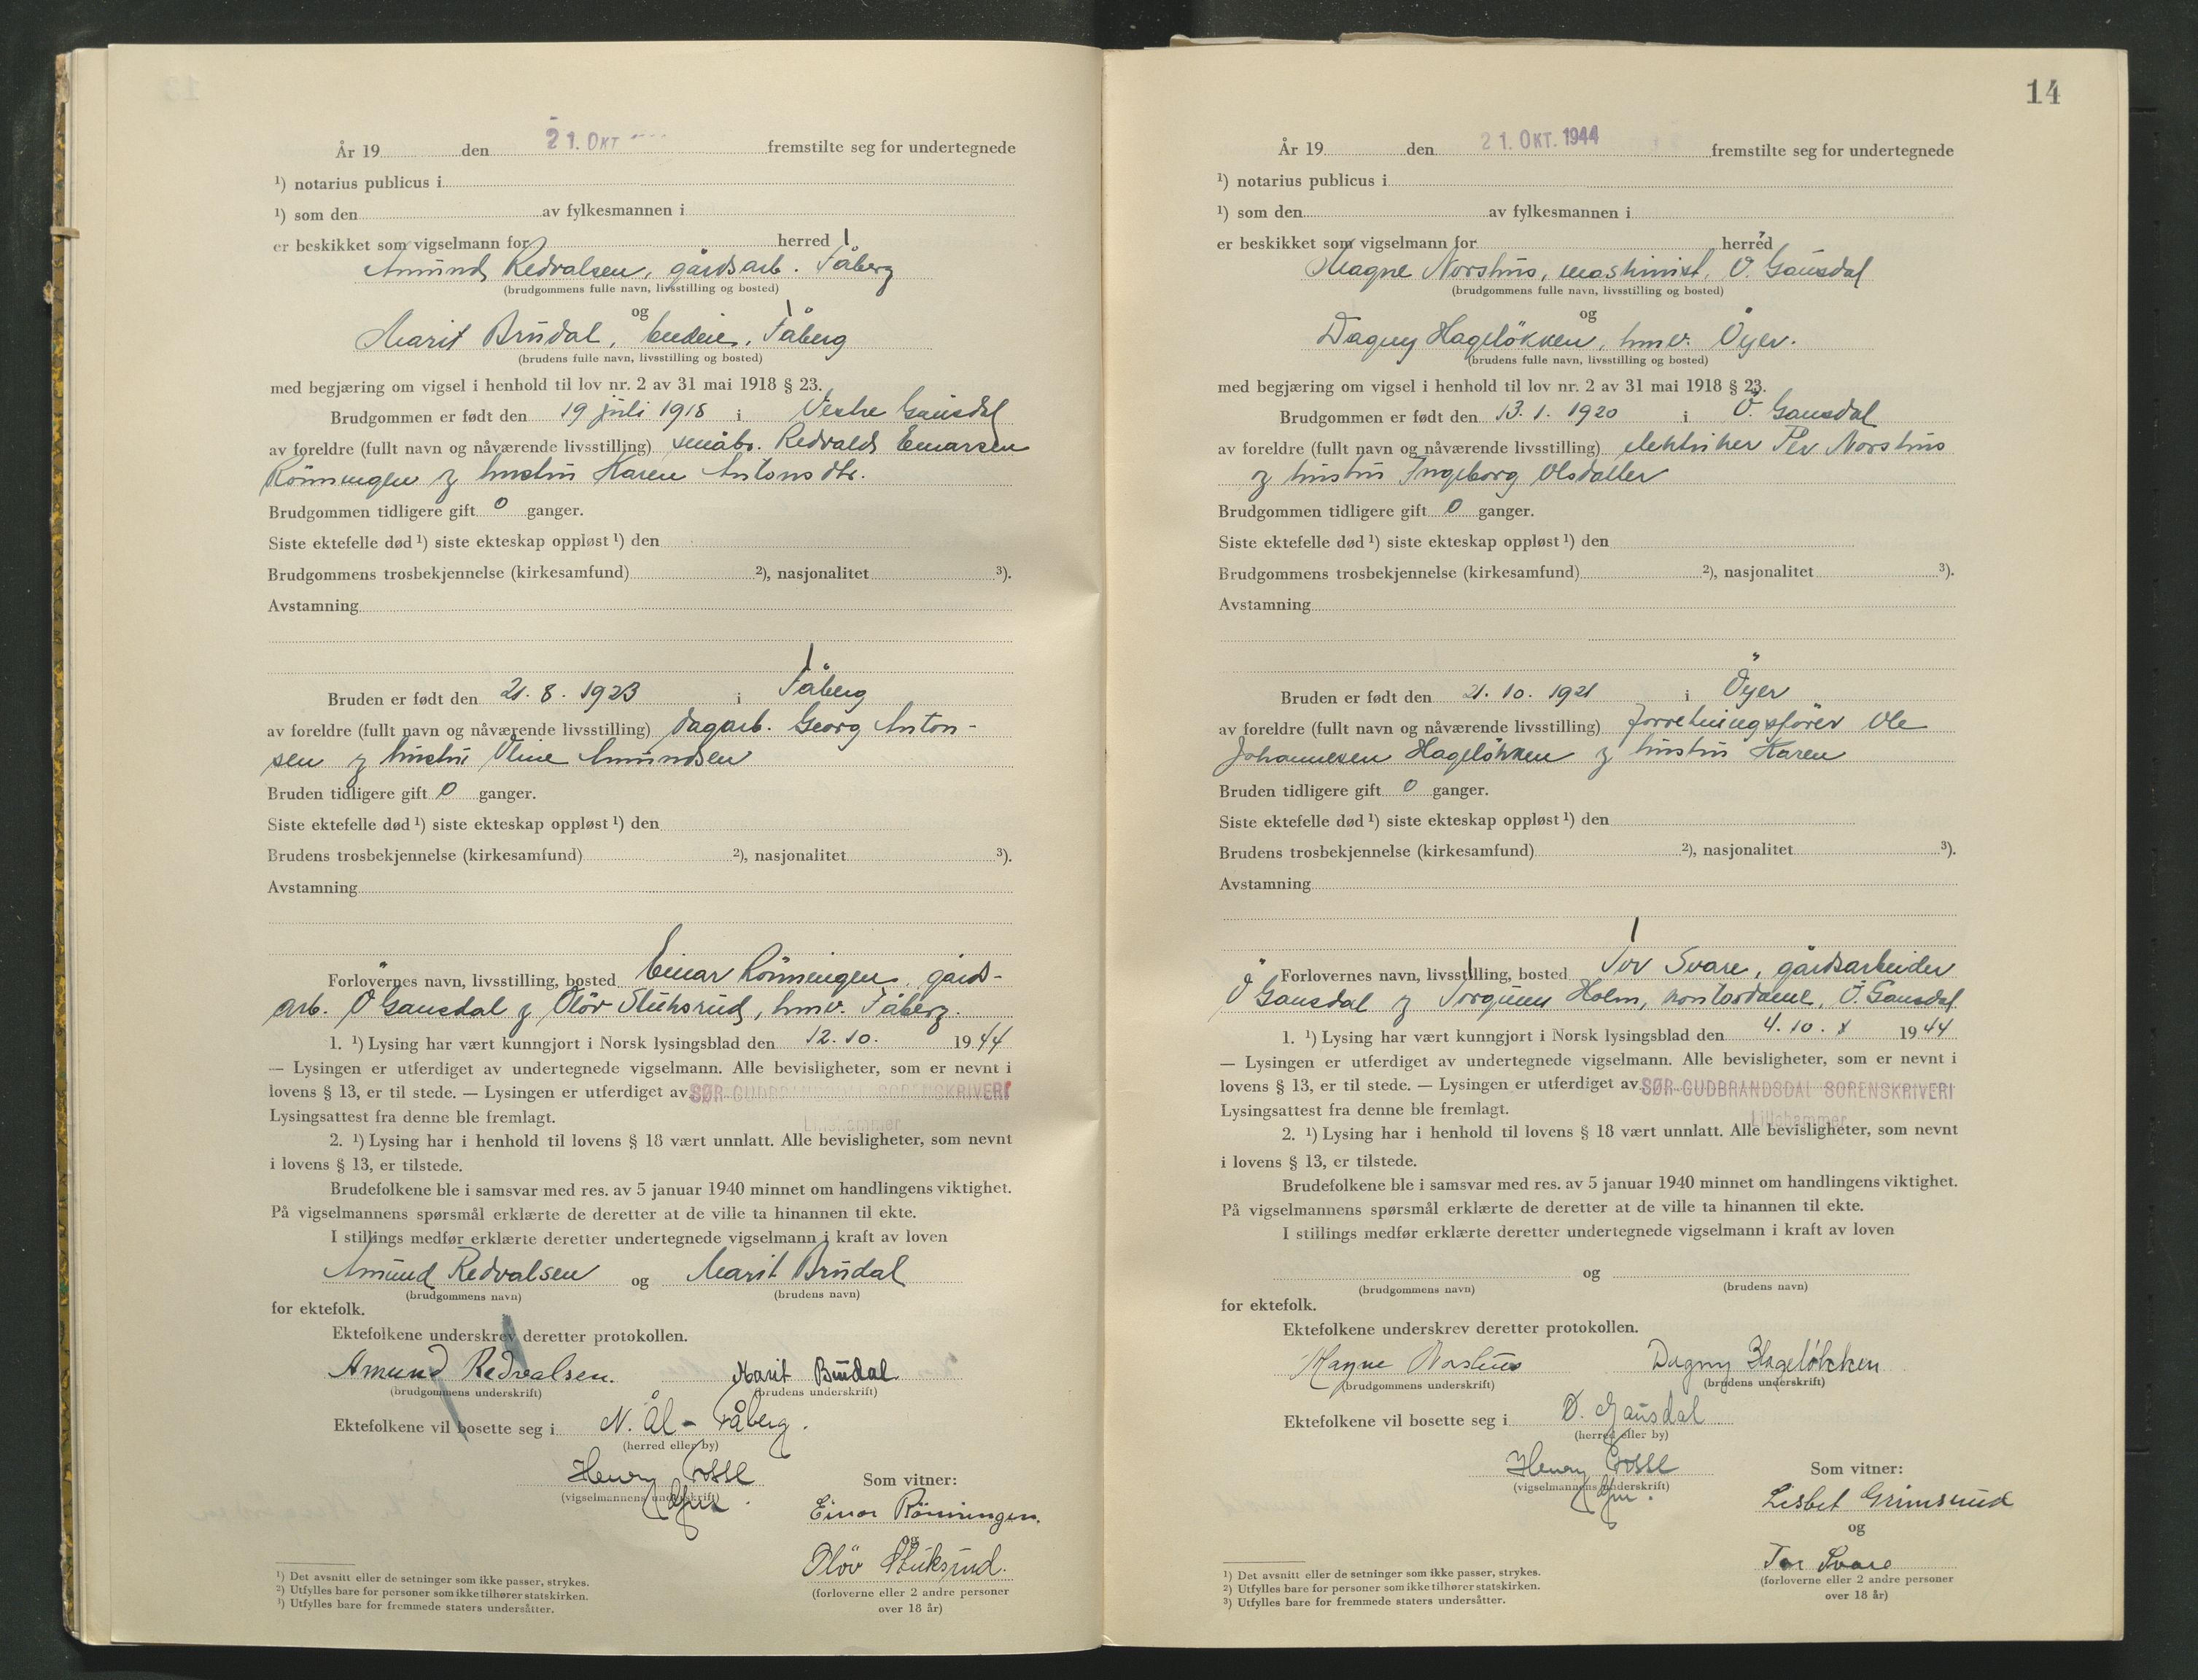 År 19 den 21. OKT fremstilte seg for undertegnede
¹) notarius publicus i
¹) som den av fylkesmannen i
er beskikket som vigselmann for herred
Amund Redvalsen, gårdsarb. Fåberg
(brudgommens fulle navn, livsstilling og bosted)
og
Marit Brudal, budeie, Fåberg
(brudens fulle navn, livsstilling og bosted)
med begjæring om vigsel i henhold til lov nr. 2 av 31 mai 1918 § 23.
Brudgommen er født den 19 juli 1918 i Vestre Gausdal
av foreldre (fullt navn og nåværende livsstilling) småbr. Redvald Emarsen
Rönningen og hustru Karen Antonsdtr.
Brudgommen tidligere gift 0 ganger.
Siste ektefelle død ¹) siste ekteskap oppløst ¹) den
Brudgommens trosbekjennelse (kirkesamfund) ²), nasjonalitet ³).
Avstamning
Bruden er født den 21. 8. 1923 i Fåberg
av foreldre (fullt navn og nåværende livsstilling) dagarb. Georg Anton-
sen og hustru Oline Amundsen
Bruden tidligere gift 0 ganger.
Siste ektefelle død ¹) siste ekteskap oppløst ¹) den
Brudens trosbekjennelse (kirkesamfund) ²), nasjonalitet ³).
Avstamning
Forlovernes navn, livsstilling, bosted Einar Rönningen, gårds-
arb. Ö Gausdal og Olöv Stuksrud, hmv. Fåberg.
1. ¹) Lysing har vært kunngjort i Norsk lysingsblad den 12. 10. 1944
— Lysingen er utferdiget av undertegnede vigselmann. Alle bevisligheter, som er nevnt i
lovens § 13, er til stede. — Lysingen er utferdiget av SØR-GUDBRANDSDAL SORENSKRIVERI
Lysingsattest fra denne ble fremlagt. Lillehammer
2. ¹) Lysing har i henhold til lovens § 18 vært unnlatt. Alle bevisligheter, som nevnt
i lovens § 13, er tilstede.
Brudefolkene ble i samsvar med res. av 5 januar 1940 minnet om handlingens viktighet.
På vigselmannens spørsmål erklærte de deretter at de ville ta hinannen til ekte.
I stillings medfør erklærte deretter undertegnede vigselmann i kraft av loven
Amund Redvalsen og Marit Brudal
(brudgommens navn) (brudens navn)
for ektefolk.
Ektefolkene underskrev deretter protokollen.
Amund Redvalsen. Marit Brudal
(brudgommens underskrift) (brudens underskrift)
Ektefolkene vil bosette seg i N. Ål - Fåberg.
(herred eller by)
Henry
(vigselmannens underskrift)
Som vitner:
Einar Rönningen.
og
Olöv Stuksrud.
(forloverne eller 2 andre personer
over 18 år)
¹) Det avsnitt eller de setninger som ikke passer, strykes.
²) Utfylles bare for personer som ikke tilhører statskirken.
³) Utfylles bare for fremmede staters undersåtter.
14
År 19 den 21. OKT. 1944 fremstilte seg for undertegnede
¹) notarius publicus i
¹) som den av fylkesmannen i
er beskikket som vigselmann for herred
Magne Norshus, maskinist, Ö. Gausdal
(brudgommens fulle navn, livsstilling og bosted)
og
Dagny Hagelökken, hmv. Öyer.
(brudens fulle navn, livsstilling og bosted)
med begjæring om vigsel i henhold til lov nr. 2 av 31 mai 1918 § 23.
Brudgommen er født den 13. 1. 1920 i Ö. Gausdal
av foreldre (fullt navn og nåværende livsstilling) elektriker Per Norshus
og hustru Ingeborg Olsdatter
Brudgommen tidligere gift 0 ganger.
Siste ektefelle død ¹) siste ekteskap oppløst ¹) den
Brudgommens trosbekjennelse (kirkesamfund) ²), nasjonalitet ³).
Avstamning
Bruden er født den 21. 10. 1921 i Öyer
av foreldre (fullt navn og nåværende livsstilling) forretningsförer Ole
Johannesen Hagelökken og hustru Karen
Bruden tidligere gift 0 ganger.
Siste ektefelle død ¹) siste ekteskap oppløst ¹) den
Brudens trosbekjennelse (kirkesamfund) ²), nasjonalitet ³).
Avstamning
Forlovernes navn, livsstilling, bosted Tor Svare, gårdsarbeider
Ö Gausdal og Torgunn Holm, kontordame, Ö. Gausdal
1. ¹) Lysing har vært kunngjort i Norsk lysingsblad den 4. 10. 1944
— Lysingen er utferdiget av undertegnede vigselmann. Alle bevisligheter, som er nevnt i
lovens § 13, er til stede. — Lysingen er utferdiget av SØR-GUDBRANDSDAL SORENSKRIVERI
Lysingsattest fra denne ble fremlagt. Lillehammer
2. ¹) Lysing har i henhold til lovens § 18 vært unnlatt. Alle bevisligheter, som nevnt
i lovens § 13, er tilstede.
Brudefolkene ble i samsvar med res. av 5 januar 1940 minnet om handlingens viktighet.
På vigselmannens spørsmål erklærte de deretter at de ville ta hinannen til ekte.
I stillings medfør erklærte deretter undertegnede vigselmann i kraft av loven
og
(brudgommens navn) (brudens navn)
for ektefolk.
Ektefolkene underskrev deretter protokollen.
Magne Norshus Dagny Hagelökken
(brudgommens underskrift) (brudens underskrift)
Ektefolkene vil bosette seg i Ö. Gausdal
(herred eller by)
Henry
(vigselmannens underskrift)
Som vitner:
Lisbet Grimsrud
og
Tor Svare
(forloverne eller 2 andre personer
over 18 år)
¹) Det avsnitt eller de setninger som ikke passer, strykes.
²) Utfylles bare for personer som ikke tilhører statskirken.
³) Utfylles bare for fremmede staters undersåtter.